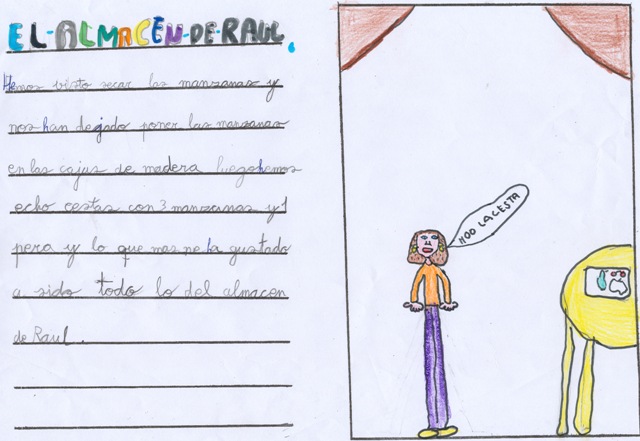 EL-ALMACEN-DE-RAUL.
Hemos visto secar las manzanas y
nos han dejado poner las manzanas
en las cajas de madera luego hemos
echo cestas con 3 manzanas y 1
pera y lo que mas me ha gustado
a sido todo lo del almacen
de Raul.
LA CESTA